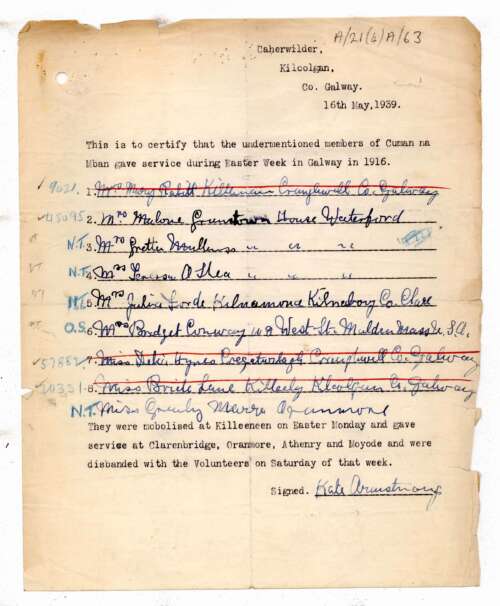 A/21(4)A/63
Caherwilder,
Kilcolgan,
Co. Galway.
16th May, 1939.
This is to certify that the undermentioned members of Cuman na
Mban gave service during Easter Week in Galway in 1916.
9021. 1. Mrs Mary Rabitt Killeenan Craughwell Co. Galway
45095 2. Mrs Malone Grumtown House Waterford
N.T. 3. Mrs Gretta Mullins " " "
N.T. 4. Mrs Teresa O Shea " " "
N.T. 5. Mrs Julia Forde Kilnamona Kilnaboy Co. Clare
O.S. 6. Mrs Bridget Conway West St. Malden Mass U.S.A.
57852 7. Miss Hynes Craughwell Co. Galway
8. Miss Bride Lane Killeely Kilcolgan Co. Galway
N.T. Miss Greely
They were mobolised at Killeeneen on Easter Monday and gave
service at Clarenbridge, Oranmore, Athenry and Moyode and were
disbanded with the Volunteers on Saturday of that week.
Signed. Kate Armstrong